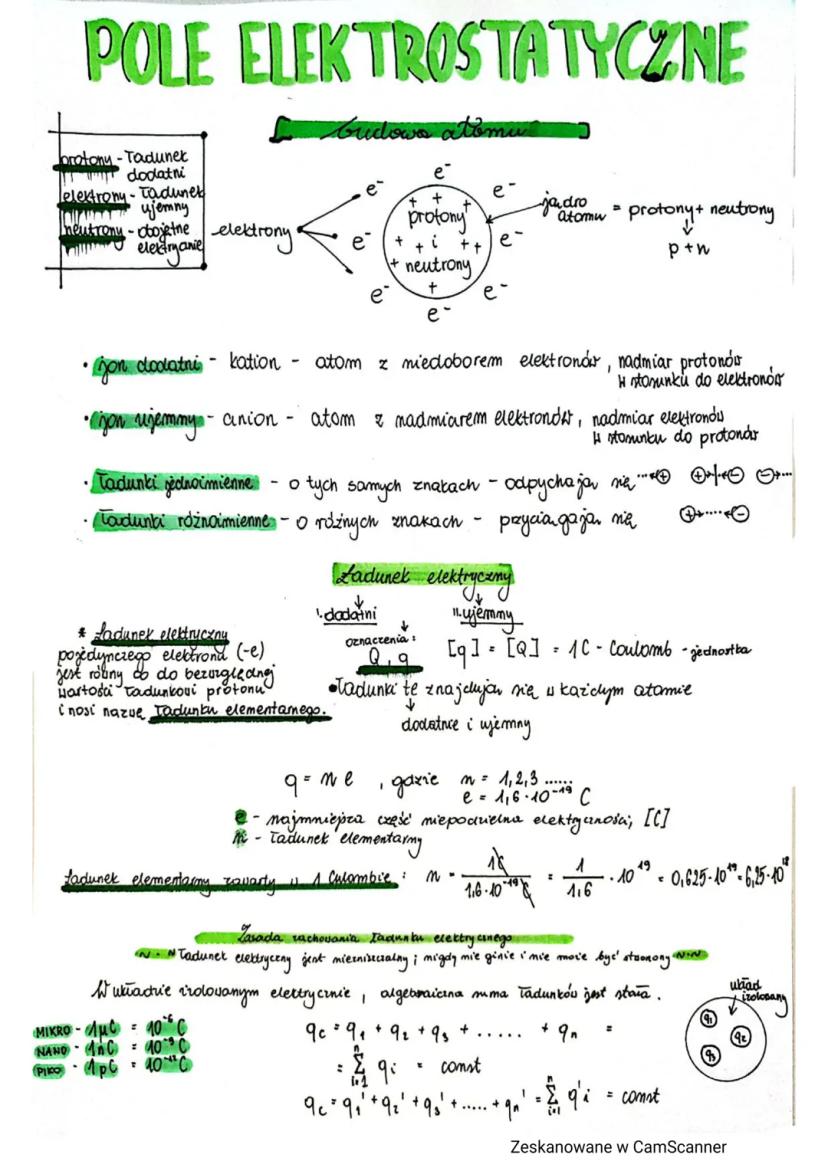 POLE ELEKTROSTATYCZNE
budowa atomu
protony - ładunek
dodatni
elektrony - ładunek
ujemny
neutrony - obojętne
elektrycznie
elektrony
e⁻ e⁻ e⁻ e⁻ e⁻ e⁻ e⁻ e⁻
+ + +
protony
+ + i + +
+ neutrony
+
jądro atomu = protony + neutrony
↓
p + n
• jon dodatni - kation - atom z niedoborem elektronów, nadmiar protonów
w stosunku do elektronów
• jon ujemny - anion - atom z nadmiarem elektronów, nadmiar elektronów
w stosunku do protonów
• Ładunki jednoimienne - o tych samych znakach - odpychają się ...←⊕ ⊕→|←⊖ ⊖→...
• Ładunki różnoimienne - o różnych znakach - przyciągają się ⊕→....←⊖
Ładunek elektryczny
↓ ↓
I. dodatni II. ujemny
* Ładunek elektryczny
pojedynczego elektronu (-e)
jest równy co do bezwzględnej
wartości ładunkowi protonu
i nosi nazwę ładunku elementarnego.
oznaczenia:
Q, q
[q] = [Q] = 1C - Coulomb - jednostka
• ładunki te znajdują się w każdym atomie
↓
dodatnie i ujemny
q = n e , gdzie n = 1,2,3 ......
e = 1,6 · 10⁻¹⁹ C
e - najmniejsza część niepodzielna elektryczności, [C]
n - ładunek elementarny
Ładunek elementarny zawarty w 1 Culombie : n = 1C / 1,6·10⁻¹⁹ C = 1 / 1,6 · 10¹⁹ = 0,625·10¹⁹ = 6,25·10¹⁸
Zasada zachowania ładunku elektrycznego
~ · ~ Ładunek elektryczny jest niezniszczalny ; nigdy nie ginie i nie może być stworzony ~·~
W układzie izolowanym elektrycznie , algebraiczna suma ładunków jest stała .
układ
izolowany
q₁ q₂ q₃
MIKRO - 1μC = 10⁻⁶ C
NANO - 1nC = 10⁻⁹ C
PIKO - 1pC = 10⁻¹² C
qc = q₁ + q₂ + q₃ + ..... + qn =
= n Σ i=1 qi = const
qc = q₁' + q₂' + q₃' + ..... + qn' = n Σ i=1 q'i = const
Zeskanowane w CamScanner